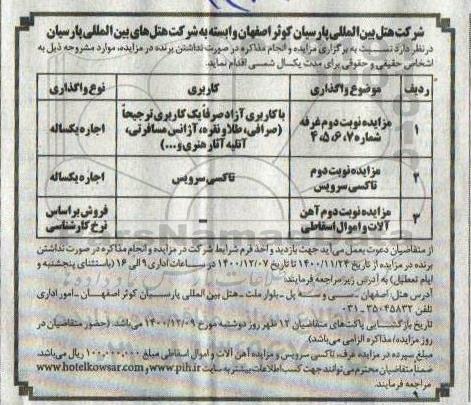 شرکت هتل بین المللی پارسیان کوثر اصفهان وابسته به شرکت هتل های بین المللی پارسیان
در نظر دارد نسبت به برگزاری مزایده و انجام مذاکره در صورت نداشتن برنده در مزایده، موارد مشروحه ذیل به
اشخاص حقیقی و حقوقی برای مدت یکسال شمسی اقدام نماید.
ردیف موضوع واگذاری کاربری نوع واگذاری
۱ مزایده نوبت دوم غرفه شماره ۴،۵،۶،۷ با کاربری آزاد صرفاً یک کاربری ترجیحاً (صرافی، طلا و نقره، آژانس مسافرتی، آتلیه آثار هنری و...) اجاره یکساله
۲ مزایده نوبت دوم تاکسی سرویس تاکسی سرویس اجاره یکساله
۳ مزایده نوبت دوم آهن آلات و اموال اسقاطی - فروش بر اساس نرخ کارشناسی
از متقاضیان دعوت بعمل می آید جهت بازدید و اخذ فرم شرایط شرکت در مزایده و انجام مذاکره در صورت نداشتن
برنده در مزایده از تاریخ ۱۴۰۰/۱۱/۲۴ تا تاریخ ۱۴۰۰/۱۲/۰۷ در ساعات اداری ۹ الی ۱۶ (باستثنای پنجشنبه و
ایام تعطیل) به آدرس زیر مراجعه فرمایند؛
آدرس هتل: اصفهان - سی و سه پل - بلوار ملت - هتل بین المللی پارسیان کوثر اصفهان - امور اداری
تلفن ۳۵۰۴۵۸۳۲-۰۳۱
تاریخ بازگشایی پاکت‌های متقاضیان ۱۲ ظهر روز دوشنبه مورخ ۱۴۰۰/۱۲/۰۹ می‌باشد. (حضور متقاضیان در
روز مزایده/ مذاکره الزامی می‌باشد)
مبلغ سپرده در مزایده غرفه، تاکسی سرویس و مزایده آهن آلات و اموال اسقاطی مبلغ ۱۰۰,۰۰۰,۰۰۰ ریال می‌باشد.
ضمناً متقاضیان محترم می‌توانند جهت کسب اطلاعات بیشتر به سایت www.pih.ir و www.hotelkowsar.com
مراجعه فرمایند.